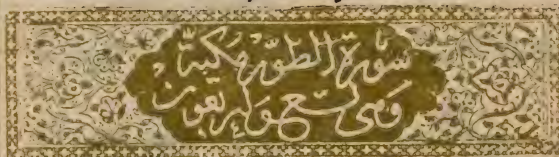 سورة الطور مكية
وهي تسع واربعون